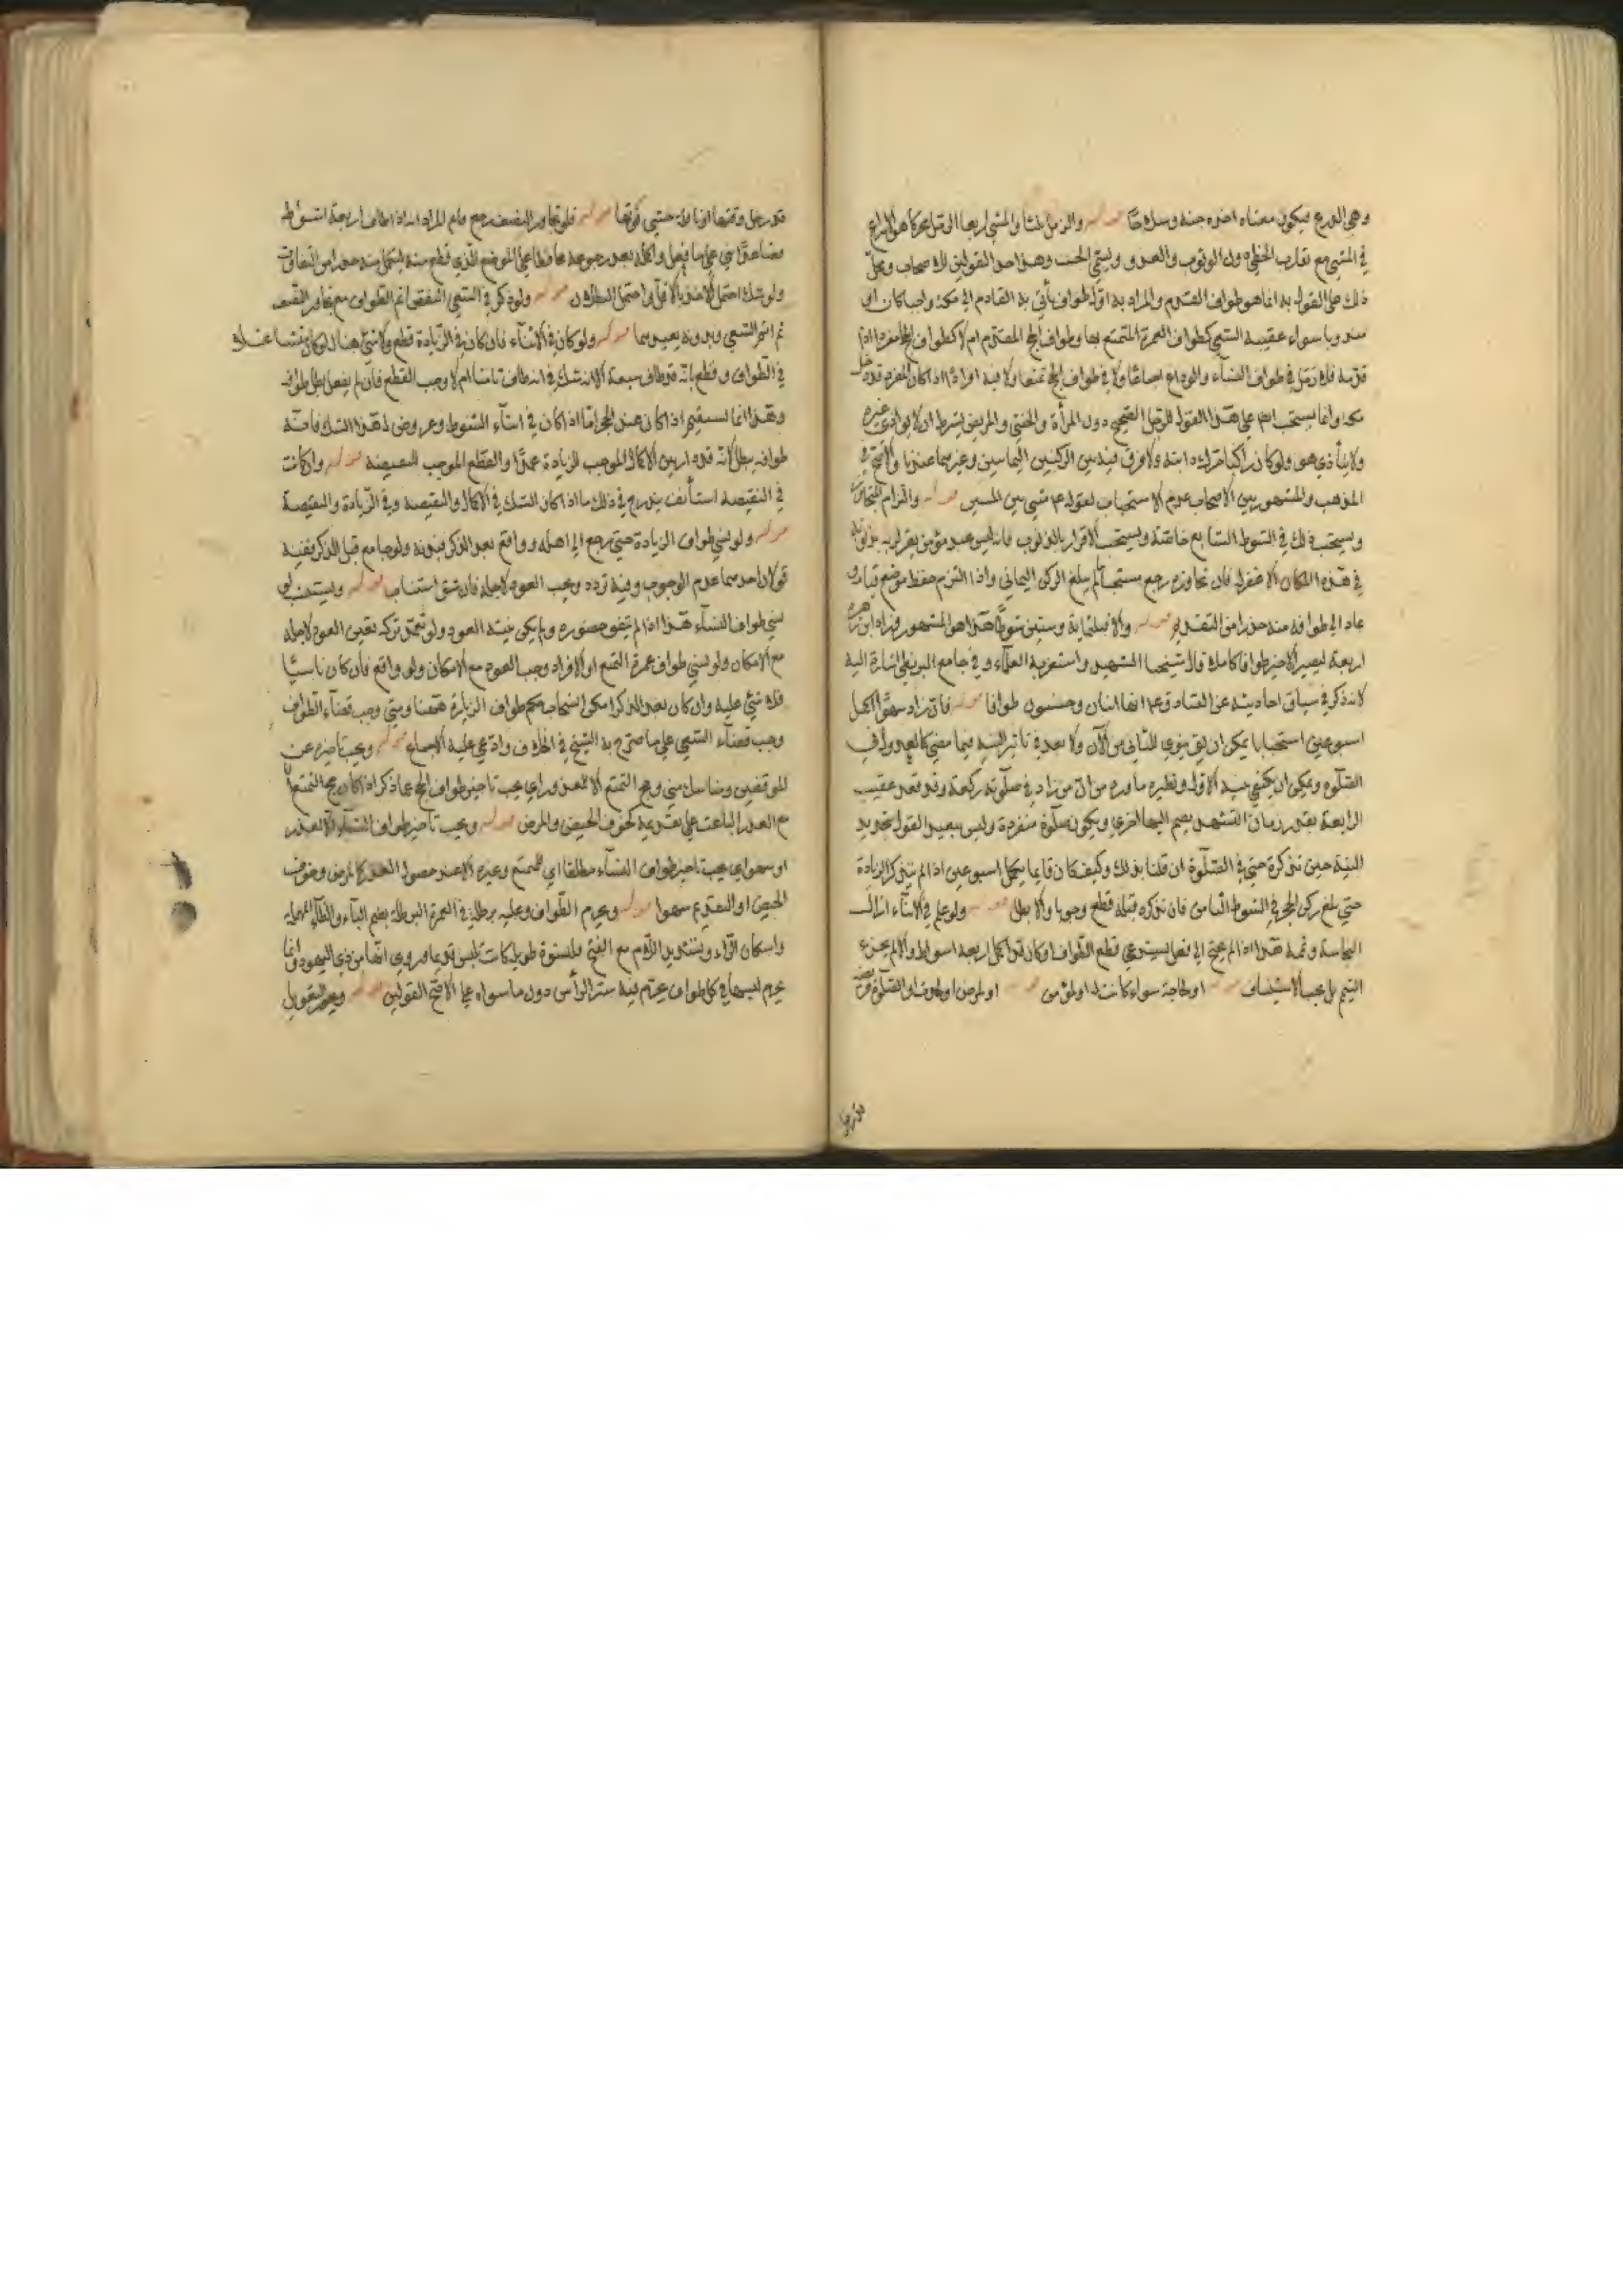 وهي الدرع فيكون معناه اخره جنة وسلاحا قوله والرمل ثلثا والمشي اربعا الرمل محركا هو الاسراع
في المشي مع تقارب الخطى دون الوثوب والعدو ويسمى الخبب وهذا احد القولين للاصحاب ومحل
ذلك على القول به انما هو طواف القدوم والمراد به اول طواف يأتي به القادم الى مكة واجبا كان او
مندوبا سواء عقبه السعي كطواف العمرة المتمتع بها وطواف الحج المقدم ام لا كطواف الحاج مفردا اذا
قدمه فلا رمل في طواف النساء والوداع اجماعا ولا في طواف الحج تمتعا ولا فيه افرادا اذا كان المفرد قد دخل
مكة وانما يستحب على هذا القول للرجل الصحيح دون المرأة والخنثى والمريض بشرط ان لا يؤذي غيره
ولا يتأذى هو ولو كان راكبا حرك دابته ولا فرق فيه بين الركنين اليمانيين وغيرهما عندنا والاصح في
المذهب والمشهور بين الاصحاب عدم الاستحباب لقوله ع مشي بين المشيين قوله والتزام المستجار
ويستحب ذلك في الشوط السابع خاصة ويستحب الاقرار بالذنوب فانه ليس عبد مؤمن يقر لربه بذنوبه
في هذه المكان الا غفر له فان تجاوزه رجع مستحبا ما لم يبلغ الركن اليماني واذا التزم حفظ موضع قيامه و
عاد الى طوافه منه حذرا من التقديم قوله والا فثلثماية وستين شوطا هذا هو المشهور وزاد ابن زهرة
اربعة ليصير الاخير طوافا كاملا قال شيخنا الشهيد واستغربه العلماء وفي جامع البزنطي اشارة اليه
لانه ذكر في سياق احاديثه عن الصادق ع انها اثنان وخمسون طوافا قوله فان زاد سهوا اكمل
اسبوعين استحبابا يمكن ان يق ينوي للثاني من الآن ولا بعد في تأثير النية فيما مضى كالعدول في
الصلوة ويمكن ان يكتفي بنية الاول ونظيره ما ورد من ان من زاد في صلوته ركعة وقد قعد عقيب
الرابعة بقدر زمان التشهد يضم اليها اخرى ويكون صلوة منفردة وليس ببعيد القول بتجديد
النية حين تذكره حتى في الصلوة ان قلنا بذلك وكيف كان فانما يكمل اسبوعين اذا لم يتذكر الزيادة
حتى بلغ ركن الحجر في الشوط الثامن فان تذكره قبله قطع وجوبا والا بطل قوله ولو علم في الاثناء ازال
النجاسة وتممه هذا اذا لم يحتج الى فعل يستدعي قطع الطواف او كان قد اكمل اربعة اشواط والا لم يجزء
التتميم بل يجب الاستيناف قوله او لحاجة سواء كانت له او لمؤمن قوله او لمرض او لحدث او لصلوة فريضة
قد دخل
قد دخل وقتها او نافلة خشي فوتها قوله فلو تجاوز النصف رجع فاتم المراد انه اذا طاف اربعة اشواط
فصاعدا بنى على ما فعل واكمل بعد رجوعه محافظا على الموضع الذي قطع منه ليكمل منه حذرا من التفاوت
ولو شك احتمل الاخذ بالاقل احتمل البطلان قوله ولو ذكر في السعي النقص اتم الطواف مع تجاوز النصف
ثم اتم السعي وبدونه يعيدهما قوله ولو كان في الاثناء فان كان في الزيادة قطع ولا شيء هنا لو كان منشأ شك
في الطواف وقطع بانه قد طاف سبعة الا انه شك في انه طاف ثامنا ام لا وجب القطع فان لم يفعل بطل طوافه
وهذا انما يستقيم اذا كان عند الحجر اما اذا كان في اثناء الشوط وعروض هذا الشك فانه
طوافه يبطل لانه قد دار بين الاكمال الموجب للزيادة عمدا والقطع الموجب للنقيصة قوله وان كانت
في النقيصة استأنف يندرج في ذلك ما اذا كان الشك في الاكمال والنقيصة وفي الزيادة والنقيصة
قوله ولو نسي طواف الزيارة حتى رجع الى اهله وواقع بعد الذكر فبدنة ولو جامع قبل الذكر ففيه
قولان احدهما عدم الوجوب وفيه تردد ويجب العود لاجله فان شق استناب قوله ويستنيب لو
نسي طواف النساء هذا اذا لم يتفق حضوره ولم يكن نيته العود ولو تعمد تركه تعين العود لاجله
مع الامكان ولو نسي طواف عمرة التمتع او الافراد وجب العود مع الامكان ولو واقع فان كان ناسيا
فلا شيء عليه وان كان بعد الذكر امكن انسحاب حكم طواف الزيارة هيهنا ومتى وجب قضاء الطواف
وجب قضاء السعي على ما صرح به الشيخ في الخلاف وادعى عليه الاجماع قوله ويجب تأخيره عن
الموقفين ومناسك منى وحج التمتع الا للعذر اي يجب تأخير طواف الحج عما ذكر اذا كان حج التمتع الا
مع العذر الباعث على تقديمه كخوف الحيض والمرض قوله ويجب تأخير طواف النساء الا لعذر
او سهو اي يجب تأخير طواف النساء مطلقا اي للمتمتع وغيره الا عند حصول العذر كالمرض وخوف
الحيض او التقديم سهوا قوله ويحرم الطواف وعليه برطلة في العمرة البرطلة بضم الباء والطاء المهملة
واسكان الراء وتشديد اللام مع الفتح قلنسوة طويلة كانت تلبس قديما وروى انها من زي اليهود وانما
يحرم لبسها في كل طواف يحرم فيه ستر الرأس دون ما سواه على الاصح القولين قوله ويجوز التعويل